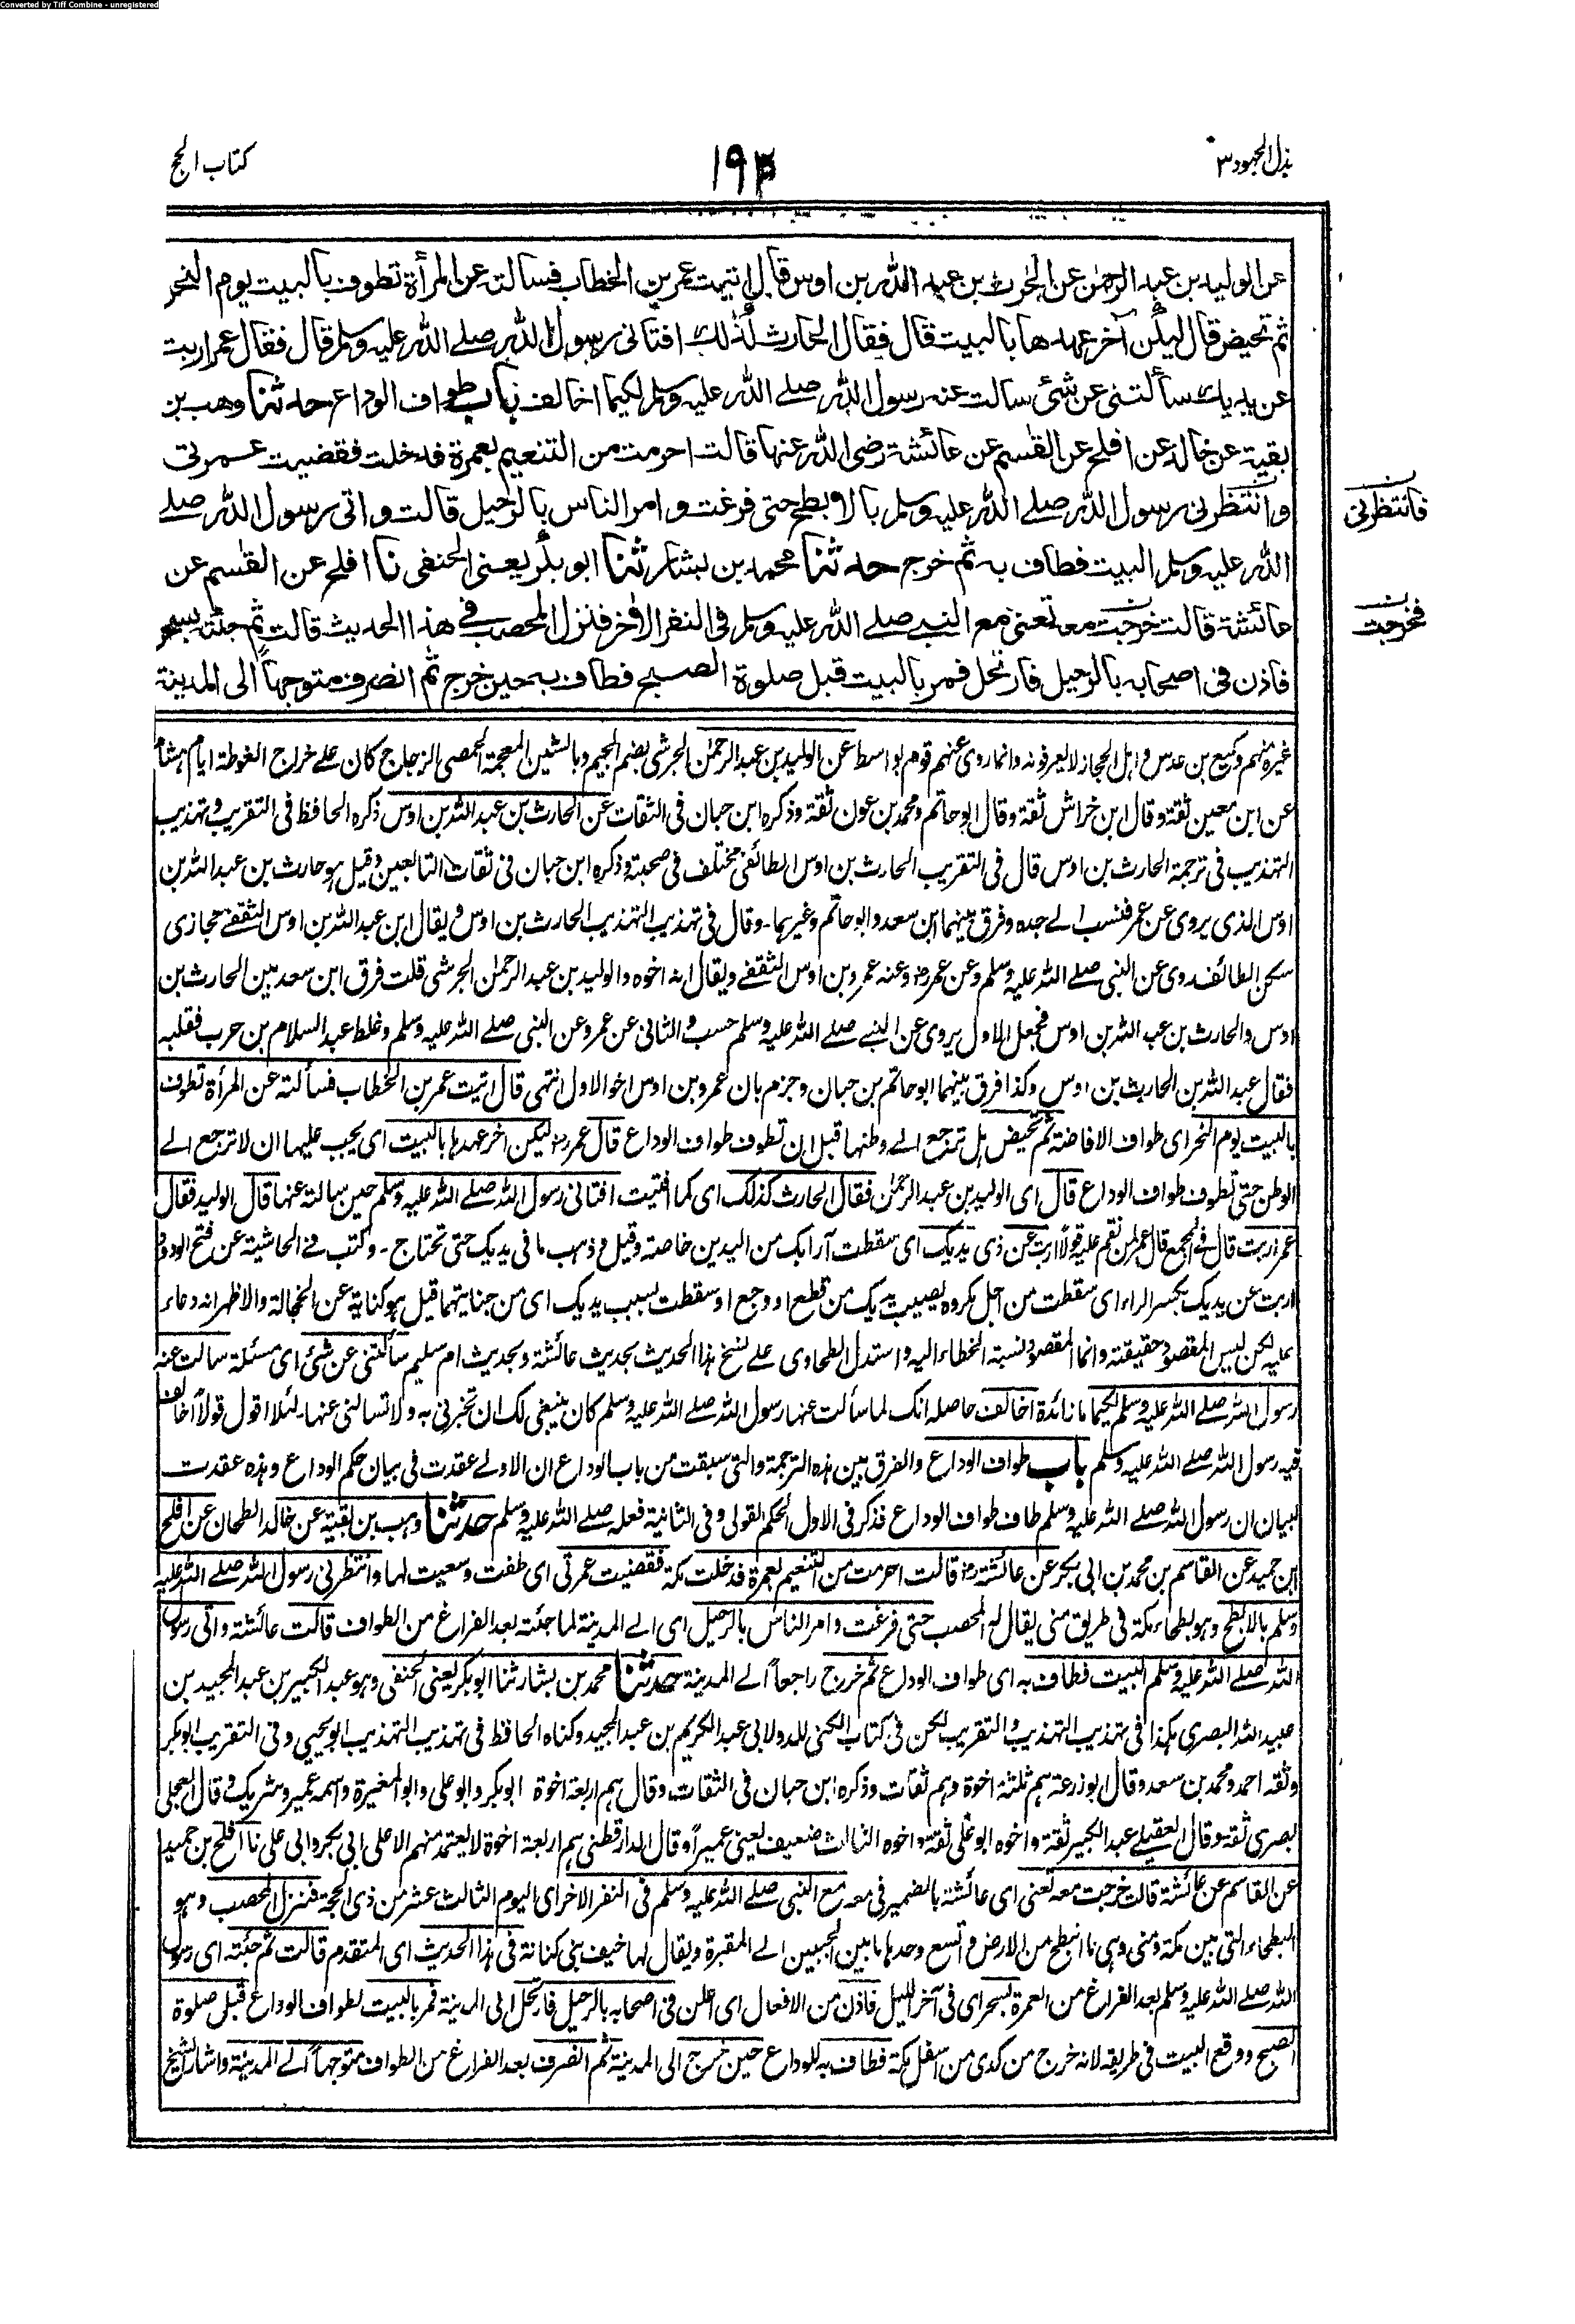 Converted by Tiff Combine - unregistered
بذل المجهود ٣
١٩٣
كتاب الحج
عن الوليد بن عبد الرحمٰن عن الحٰرث بن عبد الله بن اوس قال اتيت عمر بن الخطاب فسألته عن المرأة تطوف بالبيت يوم النحر
ثم تحيض قال ليكن آخر عهدها بالبيت قال فقال الحارث كذلك افتانى رسول الله صلے الله عليه وسلم قال فقال عمر اربت
عن يديك سألتنى عن شئ سالت عنه رسول الله صلے الله عليه وسلم لكيما اخالف باب طواف الوداع حدثنا وهب بن
بقية عن خالد عن افلح عن القٰسم عن عائشة رضى الله عنها قالت احرمت من التنعيم بعمرة فدخلت فقضيت عمرتى
وانتظرنى رسول الله صلے الله عليه وسلم بالابطح حتى فرغت وامر الناس بالرحيل قالت واتى رسول الله صلے
فانتظرنى
الله عليه وسلم البيت فطاف به ثم خرج حدثنا محمد بن بشار ثنا ابو بكر يعنى الحنفى نا افلح عن القٰسم عن
عائشة قالت خرجت معه تعنى مع النبى صلے الله عليه وسلم فى النفر الاٰخر فنزل المحصب فى هذا الحديث قالت ثم جئته بسحر
فخرجت
فاذن فى اصحابه بالرحيل فارتحل فمر بالبيت قبل صلوة الصبح فطاف به حين خرج ثم انصرف متوجهاً الى المدينة
غيره منهم وكيع بن عدس واہل الحجاز لا يعرفونه وانما روى عنهم قوم بواسط عن الوليد بن عبد الرحمٰن الجرشى بضم الجيم وبالشين المعجمة الحمصى الزجاج كان على خراج الغوطة ايام ہشام
عن ابن معين ثقة وقال ابن خراش ثقة وقال ابو حاتم ومحمد بن عون ثقة وذكره ابن حبان فى الثقات عن الحارث بن عبد الله بن اوس ذكره الحافظ فى التقريب وتهذيب
التهذيب فى ترجمة الحارث بن اوس قال فى التقريب الحارث بن اوس الطائفى مختلف فى صحبته وذكره ابن حبان فى ثقات التابعين وقيل ہو حارث بن عبد الله بن
اوس الذى يروى عن عمر فنسب الے جده وفرق بينهما ابن سعد وابو حاتم وغيرہما۔ وقال فى تهذيب التهذيب الحارث بن اوس ويقال ابن عبد الله بن اوس الثقفے حجازى
سكن الطائف روى عن النبى صلے الله عليه وسلم وعن عمر رضہ وعنه عمرو بن اوس الثقفے ويقال انه اخوه والوليد بن عبد الرحمٰن الجرشى قلت فرق ابن سعد بين الحارث بن
اوس والحارث بن عبد الله بن اوس فجعل الاول يروى عن النبے صلے الله عليه وسلم حسب والثانى عن عمر وعن النبى صلے الله عليه وسلم وغلط عبد السلام بن حرب فقلبه
فقال عبد الله بن الحارث بن اوس وكذا فرق بينهما ابو حاتم بن حبان وجزم بان عمرو بن اوس اخو الاول انتہى قال اتيت عمر بن الخطاب فسألته عن المرأة تطوف
بالبيت يوم النحر اى طواف الافاضة ثم تحيض ہل ترجع الے وطنها قبل ان تطوف طواف الوداع قال عمر رضہ ليكن آخر عهدہا بالبيت اى يجب عليها ان لا ترجع الے
الوطن حتى تطوف طواف الوداع قال اى الوليد بن عبد الرحمٰن فقال الحارث كذلك اى كما افتيت افتانى رسول الله صلے الله عليه وسلم حين سالته عنها قال الوليد فقال
عمر اربت قال فى المجمع قال عمر لمن نقم عليه قولاً اربت عن ذى يديك اى سقطت آرابك من اليدين خاصة وقيل ذہب ما فى يديك حتى تحتاج۔ وكتب فى الحاشية عن فتح الودود
اربت عن يديك بكسر الراء اى سقطت من اجل مكروه يصيب يديك من قطع او وجع او سقطت بسبب يديك اى من جنايتهما قيل ہو كناية عن الخجالة والاظهر انه دعاء
عليه لكن ليس المقصود حقيقته وانما المقصود نسبة الخطاء اليه واستدل الطحاوى علے نسخ ہذا الحديث بحديث عائشة وبحديث ام سليم سألتنى عن شئ اى مسئلة سالت عنه
رسول الله صلے الله عليه وسلم لكيما ما زائدة اخالف حاصله انك لما سألت عنها رسول الله صلے الله عليه وسلم كان ينبغى لك ان تخبرنى به ولا تسالنى عنها۔ لئلا اقول قولاً اخالف
فيه رسول الله صلے الله عليه وسلم باب طواف الوداع والفرق بين ہذه الترجمة والتى سبقت من باب الوداع ان الاولے عقدت فى بيان حكم الوداع وہذه عقدت
لبيان ان رسول الله صلے الله عليه وسلم طاف طواف الوداع فذكر فى الاول الحكم القولى وفى الثانية فعله صلے الله عليه وسلم حدثنا وہب بن بقية عن خالد الطحان عن افلح
ابن حميد عن القاسم بن محمد بن ابى بكر عن عائشة رضہ قالت احرمت من التنعيم بعمرة فدخلت مكة فقضيت عمرتى اى طفت وسعيت لها وانتظرنى رسول الله صلے الله عليه
وسلم بالابطح وہو بطحاء مكة فى طريق منى يقال له المحصب حتى فرغت وامر الناس بالرحيل اى الے المدينة لما جئته بعد الفراغ من الطواف قالت عائشة واتى رسول
الله صلے الله عليه وسلم البيت فطاف به اى طواف الوداع ثم خرج راجعاً الے المدينة حدثنا محمد بن بشار ثنا ابو بكر يعنى الحنفى وہو عبد الكبير بن عبد المجيد بن
عبيد الله البصرى ہكذا فى تهذيب التهذيب والتقريب لكن فى كتاب الكنى للدولابى عبد الكريم بن عبد المجيد وكناه الحافظ فى تهذيب التهذيب ابو يحيى وفى التقريب ابو بكر
وثقه احمد ومحمد بن سعد وقال ابو زرعة ہم ثلثة اخوة وہم ثقات وذكره ابن حبان فى الثقات وقال ہم اربعة اخوة ابو بكر وابو على وابو المغيرة واسمه عمير وشريك وقال العجلى
بصرى ثقة وقال العقيلے عبد الكبير ثقة واخوه ابو على ثقة واخوه الثالث ضعيف يعنى عميراً وقال الدارقطنى ہم اربعة اخوة لا يعتمد منهم الا على ابى بكر وابى على نا افلح بن حميد
عن القاسم عن عائشة قالت خرجت معه تعنى اى عائشة بالضمير فى معه مع النبى صلے الله عليه وسلم فى النفر الاخر اى اليوم الثالث عشر من ذى الحجة فنزل المحصب وہو
البطحاء التى بين مكة ومنى وہى ما انبطح من الارض واتسع وحدہا ما بين الجبلين الے المقبرة ويقال لها خيف بنى كنانة فى ہذا الحديث اى المتقدم قالت ثم جئته اى رسول
الله صلے الله عليه وسلم بعد الفراغ من العمرة بسحر اى فى آخر الليل فاذن من الافعال اى اعلن فى اصحابه بالرحيل فارتحل الى المدينة فمر بالبيت لطواف الوداع قبل صلوة
الصبح ووقع البيت فى طريقه لانه خرج من كدى من اسفل مكة فطاف به للوداع حين خرج الى المدينة ثم انصرف بعد الفراغ من الطواف متوجهاً الے المدينة واشار الشيخ